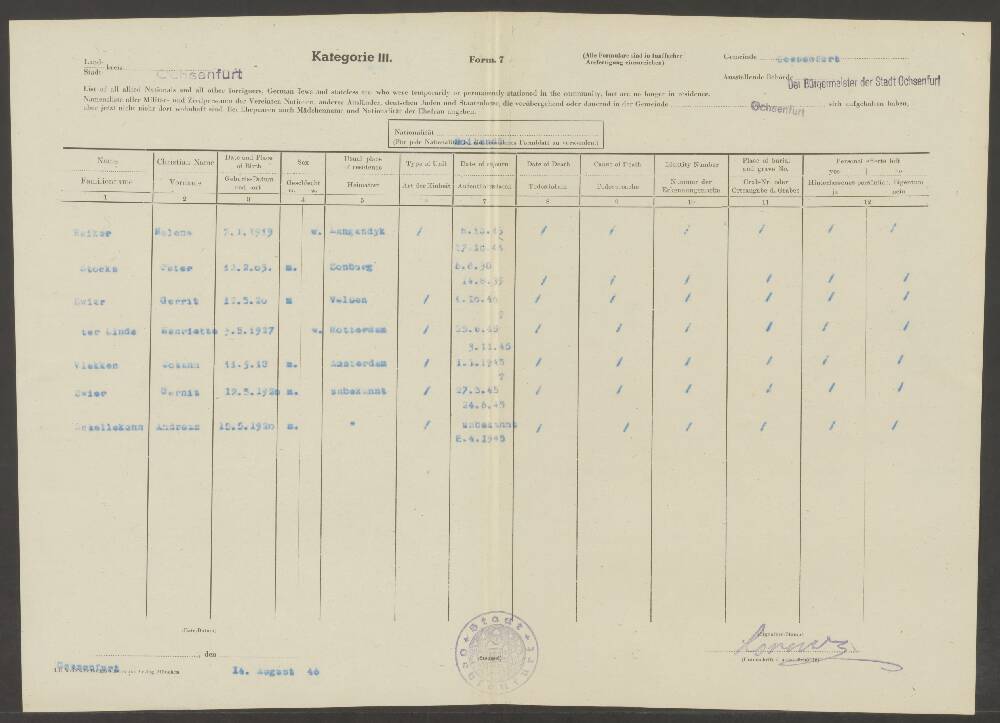 Kategorie III.
Form. 7
(Alle Formulare sind in fünffacher
Ausfertigung einzureichen)
Gemeinde Ochsenfurt
Land-
Stadt- kreis Ochsenfurt
Ausstellende Behörde Der Bürgermeister der Stadt Ochsenfurt
List of all allied Nationals and all other foreigners, German Jews and stateless etc. who were temporarily or permanently stationed in the community, but are no longer in residence.
Namensliste aller Militär- und Zivilpersonen der Vereinten Nationen, anderer Ausländer, deutschen Juden und Staatenlose, die vorübergehend oder dauernd in der Gemeinde Ochsenfurt sich aufgehalten haben,
aber jetzt nicht mehr dort wohnhaft sind. Bei Ehepaaren auch Mädchenname und Nationalität der Ehefrau angeben.
Nationalität
(Für jede Nationalität ist ein Formblatt zu verwenden)
Name Christian Name Date and Place of Birth Sex Usual place of residence Type of Unit Date of sojourn Date of Death Cause of Death Identity Number Place of burial and grave No. Personal effects left yes no
Familienname Vorname Geburts-Datum und -ort Geschlecht m. w. Heimatort Art der Einheit Aufenthaltszeit Todesdatum Todesursache Nummer der Erkennungsmarke Grab-Nr. oder Ortsangabe d. Grabes Hinterlassenes persönliches Eigentum ja nein
1 2 3 4 5 6 7 8 9 10 11 12
Helene 7.1.1919 w. Langendyk / / / / / / /
Stocks Peter 12.2.03. m. 6.6.38
14.6.39 / / / / / /
Zwier Gerrit 19.5.20 m Velsen / 1.10.40 / / / / / /
?
ter Linde Henriette 3.5.1927 w. Rotterdam / / / / / / /
3.11.45
Johann 11.5.18 m. Amsterdam / 1.1.1945 / / / / / /
?
Zwier Gernit 19.5.1920 m. unbekannt / 27.3.45 / / / / / /
24.6.45
Andreas 15.5.1920 m. " / unbekannt / / / / / /
8.4.1945
(Date-Datum)
Ochsenfurt, den 14. August 46
Stadt Ochsenfurt
(Signature-Name)